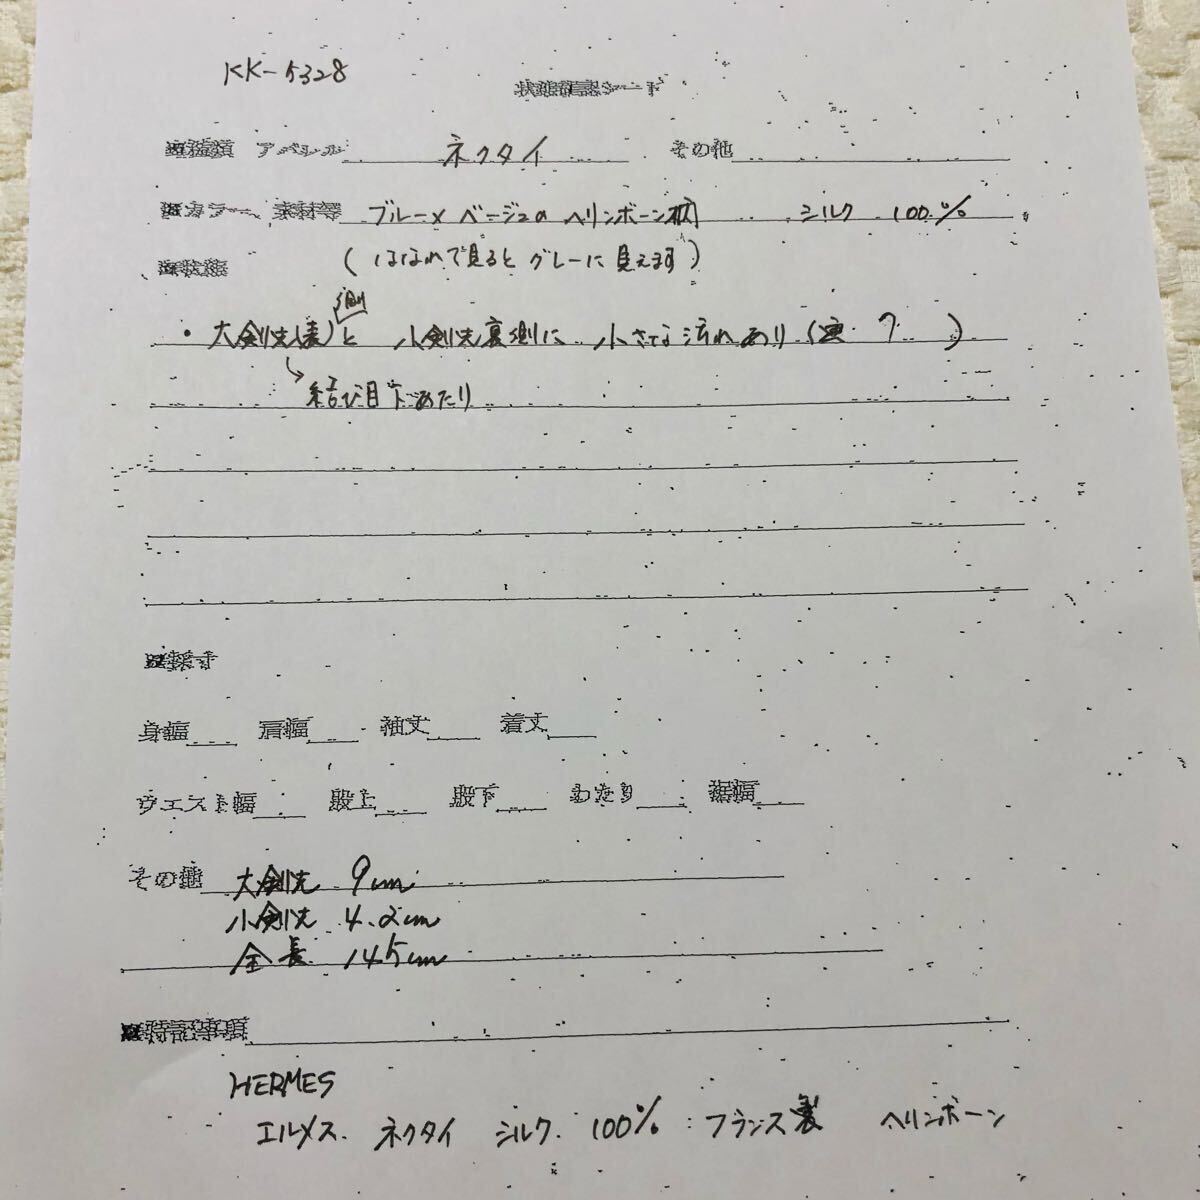 KK-5328
状態確認シート
※種類 アパレル ネクタイ その他
※カラー、素材等 ブルー×ベージュのヘリンボーン柄 シルク 100%
(はなれて見るとグレーに見えます)
※状態
側
・大剣先(表)と 小剣先裏側に 小さな汚れあり( 7 )
→結び目下あたり
※採寸
身幅 肩幅 袖丈 着丈
ウエスト幅 股上 股下 わたり 裾幅
その他 大剣先 9cm
小剣先 4.2cm
全長 145cm
※特記事項
HERMES
エルメス. ネクタイ シルク. 100% フランス製 ヘリンボーン